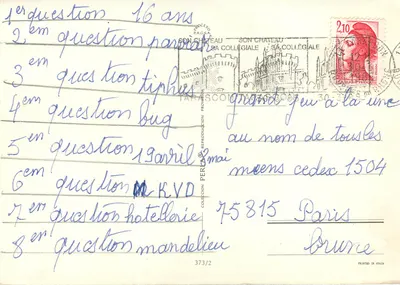 1er question 16 ans
2em question
3em question tiphus
4em question bug
5em question 19 avril 2 mai
6em question KVD
7er question hotellerie
8er question mandelieu
SON CHATEAU
SA COLLEGIALE
SON CHATEAU
SA COLLEGIALE
2,10
grand jeu à la une
au nom de tousles
moens cedex 1504
75815 Paris
brune
373/2